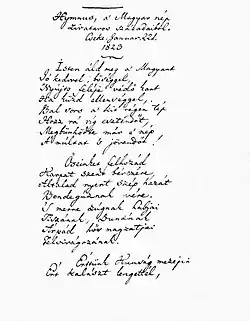 Hymnus, a' Magyar nép
zivataros századaiból.
Cseke, Januar. 22d.
1823
Isten áldd meg a' Magyart
Jó kedvvel, bőséggel,
Nyújts feléje védő kart
Ha küzd ellenséggel;
Bal sors a' kit régen tép
Hozz rá víg esztendőt,
Megbűnhödte már e' nép
A' multat 's jövendőt!
Őseinket felhozád
Kárpát szent bérczére,
Általad nyert szép hazát
Bendegúznak vére.
'S merre zúgnak habjai
Tiszának, Dunának
Árpád hős magzatjai
Felvirágozának.
Értünk Kunság mezein
Ért kalászt lengettél,